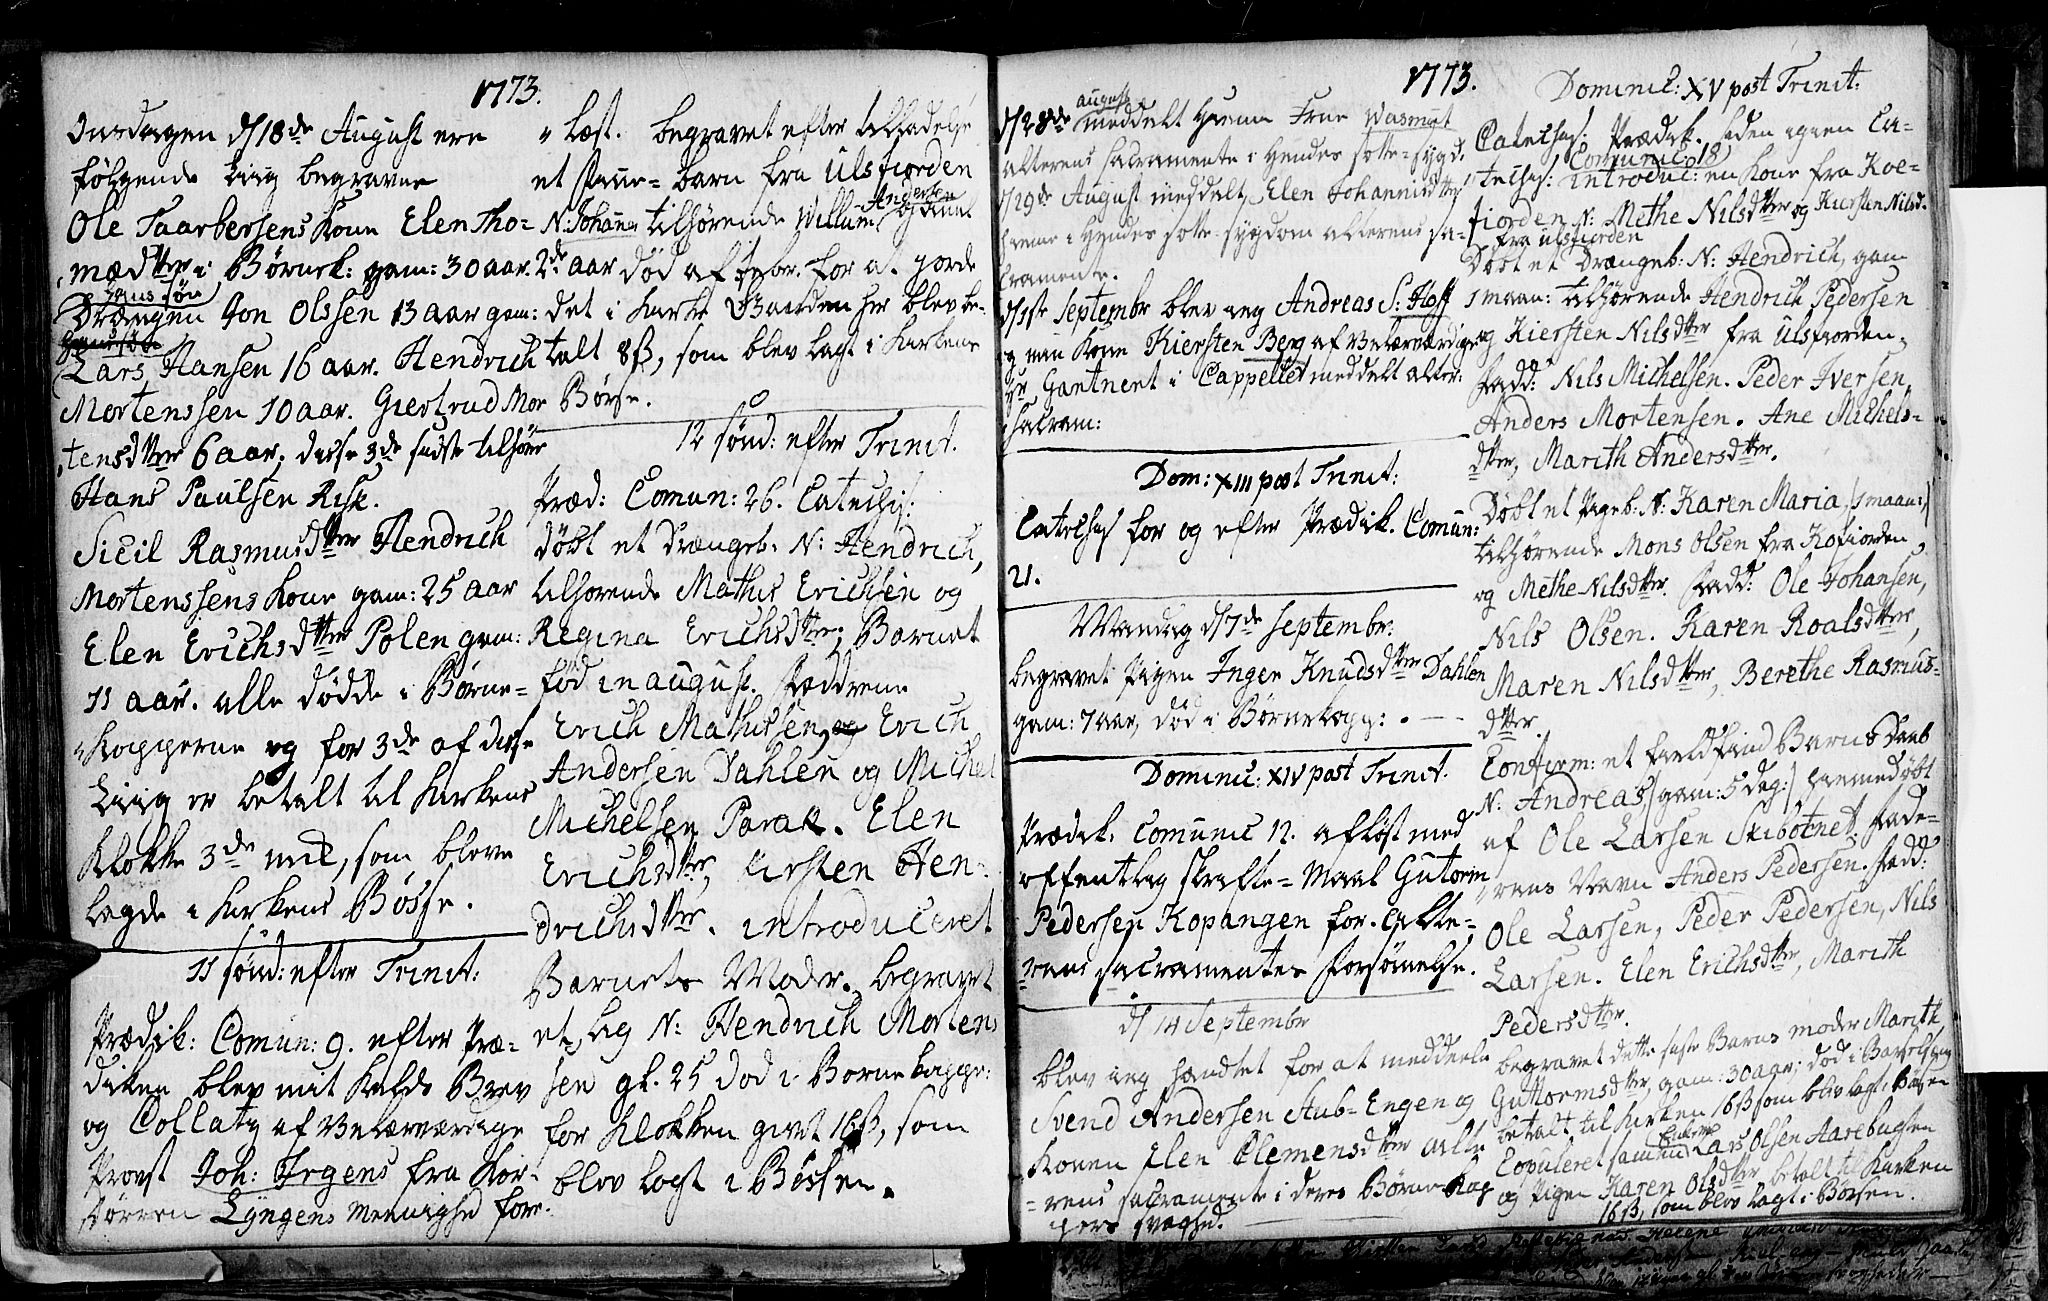 1773.
Onsdagen d/18de August ere
følgende Liig begravne
Ole Taarbersens Kone Elen Tho=
mæsdtter i Børnek: gam: 30 aar.
Hans søn
Drængen Jon Olssen 13 aar gam:
Lars Hansen 16 aar. Hendrich
Mortenssen 10 aar. Giertrud Mor
tensdtter 6 aar, disse 3de sidste tilhører
Hans Paulsen Risk.
Sicil Rasmusdtter Hendrich
Mortenssens Kone gam: 25 aar
Elen Erichsdtter Polen gam:
11 aar. alle døde i Børne=
Kopperne og for 3de af disse
Liig er betalt til Kirkens
Klokke 3de mrk, som bleve
lagde i Kirkens Bøsse.
11 sønd: efter Trinit:
Prædik: Comun: 9. efter Præ=
diken blev mit Kalds Brev
og Collatz af Velærværdige
Provst Joh: Irgens fra Kor=
større Lyngens Meenighed fore=
læst. begravet efter tilladelse
et Pige=barn fra Ulsfjorden
N: Johanna tilhørende Willum Andersen
2de aar død af for at jorde
det i Karlsø Gaarden her blev be=
talt 8ß, som blev lagt i Kirkens
Børse.
12 sønd: efter Trinit.
Præd: Comun: 26. Catechis:
døbt et Drængeb. N: Hendrich,
tilhørende Mathis Erichsen og
Regina Erichsdtter, Barnet
fød in august. Fadderne
Erich Mathissen, Erich
Andersen Dahlen og Michel
Michelsen Parak. Elen
Erichsdtter, Kirsten Hen=
drichsdtter. introduceret
Barnets Moder. begravet
et Lig N: Hendrich Mortens
sen gl. 25 død i Børnekopper:
for Klokken givet 16ß, som
blev lagt i Bøssen.
1773.
august
d/28de meddelt Hiemme Frue Wasmut
alterens Sacramente i Hendes sotte=sygd:
d/29de August meddelt Elen Johannisdtter
hiemme i Hendes sotte=sygdom alterens Sa=
cramente.
d/1ste Septembr blev jeg Andreas S: Hoff
og min Kone Kiersten Berg af Velærværdige
Hr Gantnert i Cappellet meddelt alter:
Sacram:
Dom: XIII post Trinit:
Catechis for og efter Prædik. Comun:
21.
Mandag d/7de Septembr:
begravet Pigen Inger Knudsdtter Dahlen
gam: 7 aar, død i Børnekopp:
Dominic: XIV post Trinit.
Prædik: Comunic 12. afløst med
offentlig Skrifte=Maal Gutorm
Pedersen Kopangen for. Alte=
rens Sacramentes Forsømelse.
d/14 Septembr
blev jeg hændtet for at meddeele
Svend Andersen Stub=Engen og
Konen Elen Clemensdtter alte
=rens Sacramente i deres Børne=Kop
pers svaghed.
Dominic: XV post Trinit:
Catechis: Prædik. siden igien Ca=
Comunic: 18
techis: introduc: en Kone fra Koe=
fiorden N: Methe Nilsdtter og Kiersten Nilsd.
fra Ulsfiorden
Døbt et Drængeb: N: Hendrich, gam
1 maan: tilhørende Hendrich Pedersen
og Kiersten Nilsdtter fra Ulsfiorden,
Fadd: Nils Michelsen. Peder Iversen,
Anders Mortensen. Ane Michels=
dtter, Marith Andersdtter.
Døbt et Pigeb: N: Karen Maria, (1 maan:)
tilhørende Mons Olsen fra Kofiorden
og Methe Nilsdtter. Fadd: Ole Johansen,
Nils Olsen. Karen Roalsdtter,
Maren Nilsdtter, Berethe Rasmus=
dtter.
Confirm: et Fieldfind Barns Daab
N: Andreas (gam: 5 dag:) hiemedøbt
af Ole Larsen Skibotnet. Fade=
rens Navn Anders Pedersen. Fadd:
Ole Larsen, Peder Pedersen, Nils
Larsen. Elen Erichsdtter, Marith
Pedersdtter.
begravet dette siste Barns moder Marith
Guttormsdtter, gam: 30 aar; død i Barselseng
betalt til Kirken 16ß som blev lagt i Bøsen
Enkem:
Copuleret samme Lars Olsen Aarebugten
og Pigen Karen Olsdtter betalt til Kirken
16ß, som blev lagt i Børsen.